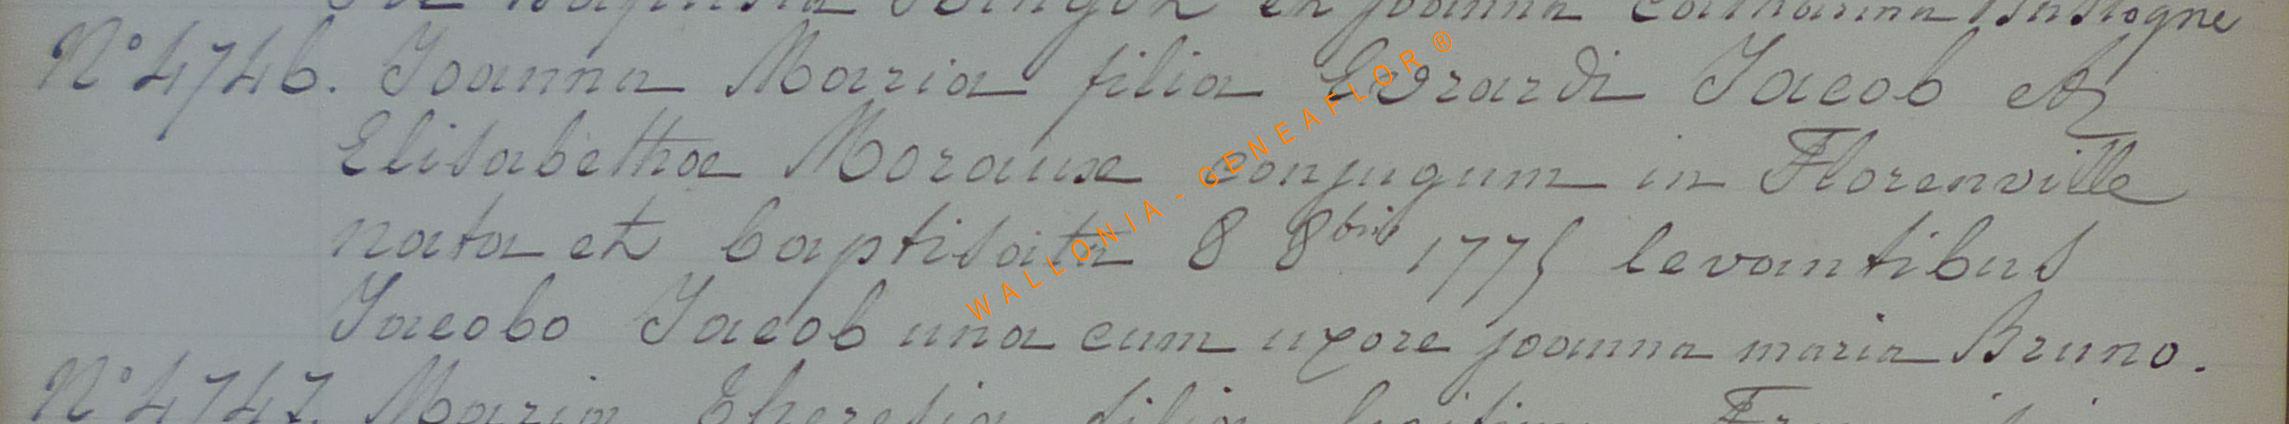 et joanna Catharina Bastogne
N° 4746. Joanna Maria filia Evrardi Jacob et
Elisabethæ Moraux conjugum in Florenville
nata et baptisata 8 8bris 1775 levantibus
Jacobo Jacob una cum uxore joanna maria Bruno.
N° 4747. Maria Theresia filia
WALLONIA - GENEAFLOR ®